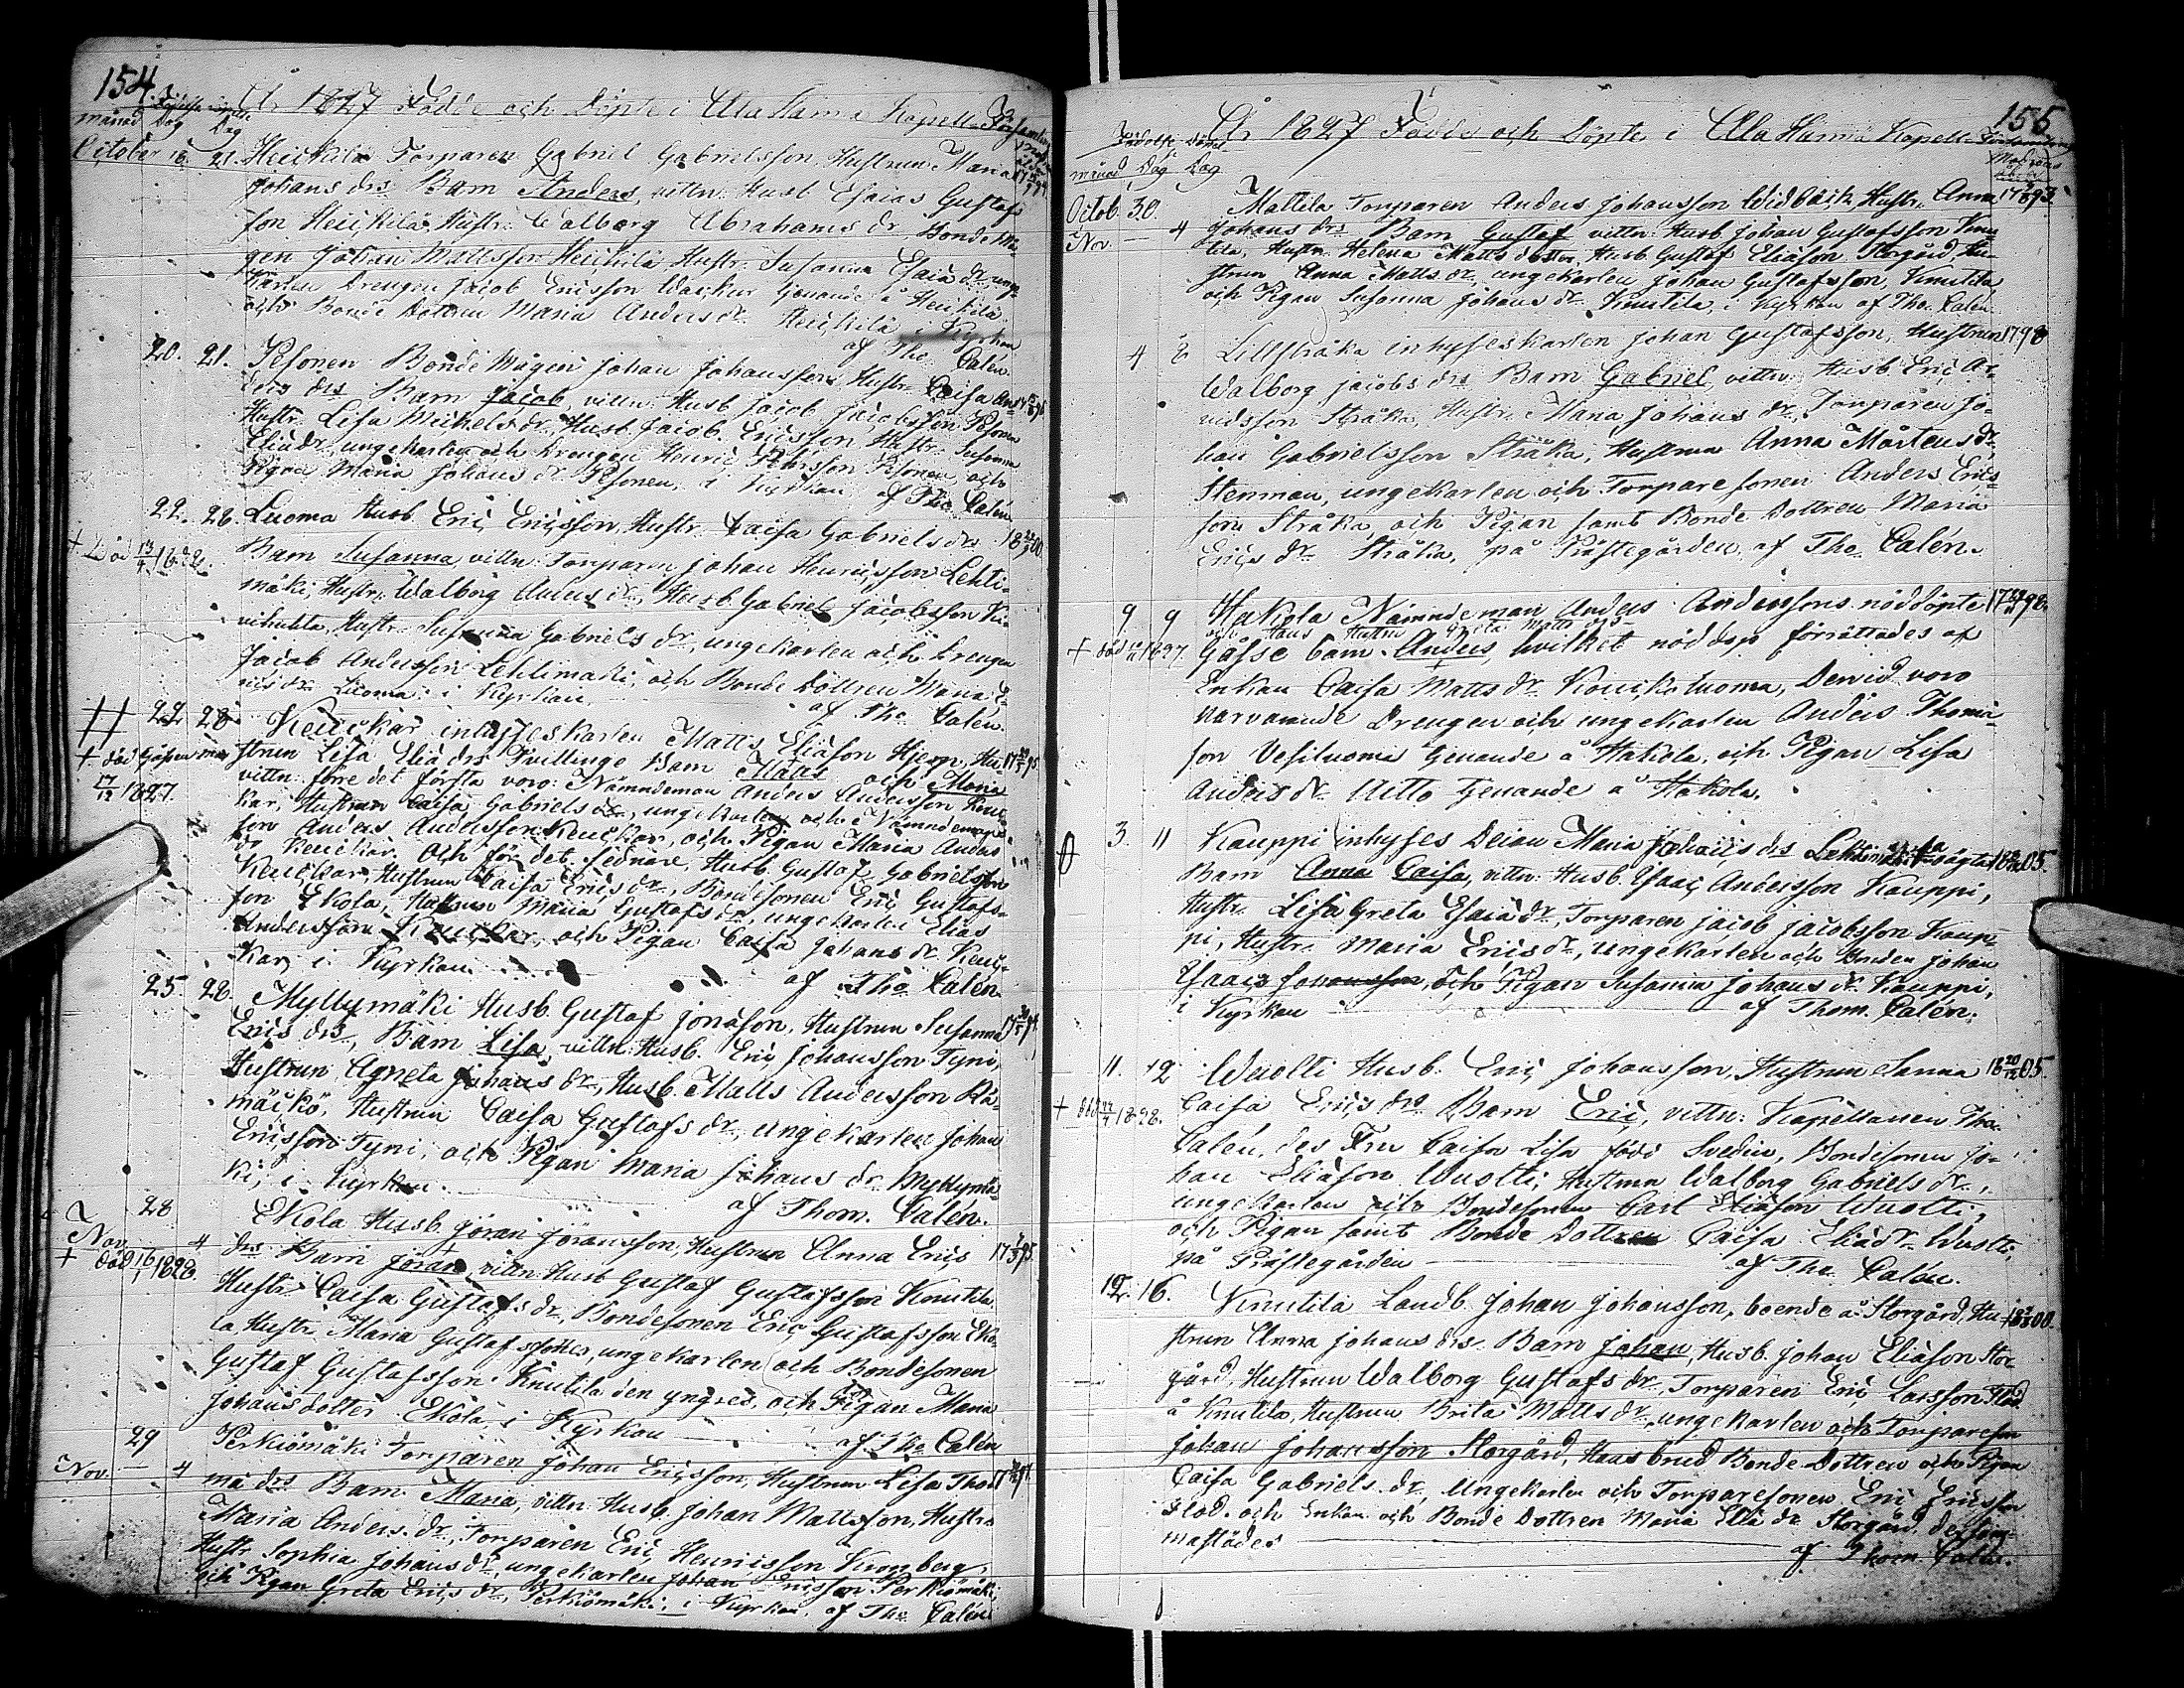 154.
År 1827 Födde och Döpte i Alahärmä Kapell-Församling
månad Dag Dag
October 16. 21. Heickilä Torparen Gabriel Gabrielsson, Hustrun Maria
Johans drs Barn Anders, vittn: Husb Esaias Gustaf
son Heickilä, Hustr: Walborg Abrahams dr Bonde Må-
gen Johan Mattsson Heickilä, Hustr: Susanna Esaiæ dr, unge
Karlen Drengen Jacob Ericsson Wackur tjenande å Heickilä
och Bonde Dottren Maria Anders dr Heickilä i Kyrkan
af Tho. Calén
20. 21. Pesonen Bonde Mågen Johan Johansson Hustr: Caisa An-
ders drs Barn Jacob, vittn: Husb Jacob Jacobsson Pesonen
Hustr. Lisa Michels dr, Husb. Jacob Ericsson Hustr: Susanna
Eliæ dr, ungekarlen och Drengen Henric Pehrsson Pesonen, och
Pigan Maria Johans dr Pesonen, i Kyrkan af Tho. Calén
22. 28. Luoma Husb. Eric Ericsson, Hustr. Caisa Gabriels drs
Barn Susanna, vittn: Torparen Johan Henricsson Lehti-
mäki, Hustr: Walborg Anders dr, Husb Gabriel Jacobsson Ki-
vihuhta, Hustr: Susanna Gabriels dr, ungekarlen och Drengen
Jacob Andersson Lehtimäki, och Bonde Dottren Maria E-
rics dr Luoma, i Kyrkan. af Tho. Calén.
22 28 Keuckar inhyseskarlen Matts Eliæson Hjerp, Hu-
+ död Gossen
strun Lisa Eliæ drs Tvillinge Barn Matts och Maria
17/12 1827.
vittn: förre det första voro: Nämndeman Anders Andersson Keuc-
kar, Hustrun Caisa Gabriels dr, ungekarlen och Nämndemans
son Anders Andersson Keuckar, och Pigan Maria Anders
dr Keuckar. Och för det sednare, Husb. Gustaf Gabrielsson
Keuckar, Hustrun Caisa Erics dr, Bondesonen Eric Gustafs-
son Ekola, Hustrun Maria Gustafs dr, ungekarlen Elias
Andersson Keuckar, och Pigan Caisa Johans dr Keuc-
kar, i Kyrkan. af Tho. Calén.
25. 28. Myllymäki Husb. Gustaf Jonæson, Hustrun Susanna
Erics drs, Barn Lisa, vittn: Husb. Eric Johansson Tyni,
Hustrun Agneta Johans dr, Husb. Matts Andersson Rä-
mäckö, Hustrun Caisa Gustafs dr, ungekarlen Johan
Ericsson Tyni, och Pigan Maria Johans dr Myllymä-
ki, i Kyrkan. af Thom. Calén.
28 Ekola Husb. Jöran Jöransson, Hustrun Anna Erics
Nov. 4
drs Barn Jöran, vittn: Husb. Gustaf Gustafsson Knutila
+ död 16/1 1828.
Hustr: Caisa Gustafs dr, Bondesonen Eric Gustafsson Eko-
la, Hustr Maria Gustafs dotter, ungekarlen och Bondesonen
Gustaf Gustafsson Knutila den yngre, och Pigan Maria
Johans dotter Ekola, i Kyrkan af Tho Calén
29 Perkiömäki Torparen Johan Ericsson, Hustrun Lisa Tho-
Nov. — 4
mæ drs Barn Maria, vittn: Husb. Johan Mattsson, Hustr:
Maria Anders dr, Torparen Eric Henricsson Kronberg,
Hustr. Sophia Johans dr, ungekarlen Johan Ericsson Perkiömäki,
och Pigan Greta Erics dr, Perkiömäki, i Kyrkan. af Tho Calén
155
År 1827 Födde och Döpte i Alahärmä Kapell-Församling
Födelse Döpel
månad Dag Dag
Octob. 30. Mattila Torparen Anders Johansson Widbäck, Hustr: Anna
Nov. — 4 Johans drs Barn Gustaf vittn: Husb Johan Gustafsson Knu-
tila, Hustr: Helena Matts dotter, Husb. Gustaf Eliæson Storgård, Hu-
strun Anna Matts dr, ungekarlen Johan Gustafsson, Knutila
och Pigan Susanna Johans dr Knutila, i Kyrkan af Tho. Calén
4 Lillstråka inhyseskarlen Johan Gustafsson, Hustrun 1798
Walborg Jacobs drs Barn Gabriel, vittn: Husb Eric Ar-
vidsson Stråka, Hustr: Maria Johans dr, Torparen Jo-
han Gabrielsson Stråka, Hustrun Anna Mårtens dr
Stenman, ungekarlen och Torparesonen Anders Erics-
son Stråka, och Pigan samt Bonde Dottren Maria
Erics dr Stråka, på Prästegården, af Tho. Calén.
9 9 Hakola Nämndeman Anders Anderssons nöddöpte
och Hans Hustru Greta Matts drs
Gosse barn Anders, hvilket nöddop förrättades af
Enkan Caisa Matts dr Kouckoluoma, Dervid voro
närvarande Drengen och ungekarlen Anders Thomæ-
son Vesiluoma tjenande å Hakola, och Pigan Lisa
Anders dr Aitto tjenande å Hakola.
3. 11 Kauppi inhyses Deian Maria Johans drs Lehtimäki oägta
Barn Anna Caisa, vittn: Husb. Isaac Andersson Kauppi,
Hustr. Lisa Greta Esaiæ dr, Torparen Jacob Jacobsson Kaup-
pi, Hustr: Maria Erics dr, ungekarlen och Bonden Johan
Isaacs Johansson, och Pigan Susanna Johans dr Kauppi,
i Kyrkan af Thom. Calén.
11. 12 Wuolti Husb. Eric Johansson, Hustrun Sanna 18 20/12 05.
Caisa Erics drs Barn Eric, vittn: Kapellanen Tho.
Calén, des Fru Caisa Lisa född Svedin, Bondesonen Jo-
han Eliæson Wuolti, Hustrun Walborg Gabriels dr,
ungekarlen och Bondesonen Carl Eliæson Wuolti,
och Pigan samt Bonde Dottren Caisa Eliæ dr Wuolti
på Prästegården af Tho. Calén.
15. 16. Knutila Landb. Johan Johansson, boende å Storgård, Hu-
strun Anna Johans drs Barn Johan, Husb. Johan Eliæson Stor-
gård, Hustrun Walborg Gustafs dr, Torparen Eric Larsson Flod
å Knutila, Hustrun Brita Matts dr, ungekarlen och Torpareson
Johan Johansson Storgård, Hans brud Bonde Dottren och Pigan
Caisa Gabriels dr, Ungekarlen och Torparesonen Eric Ericsson
Flod. och Enkan och Bonde Dottren Maria Eliæ dr Storgård. dersam-
mastädes af Thom. Calén.